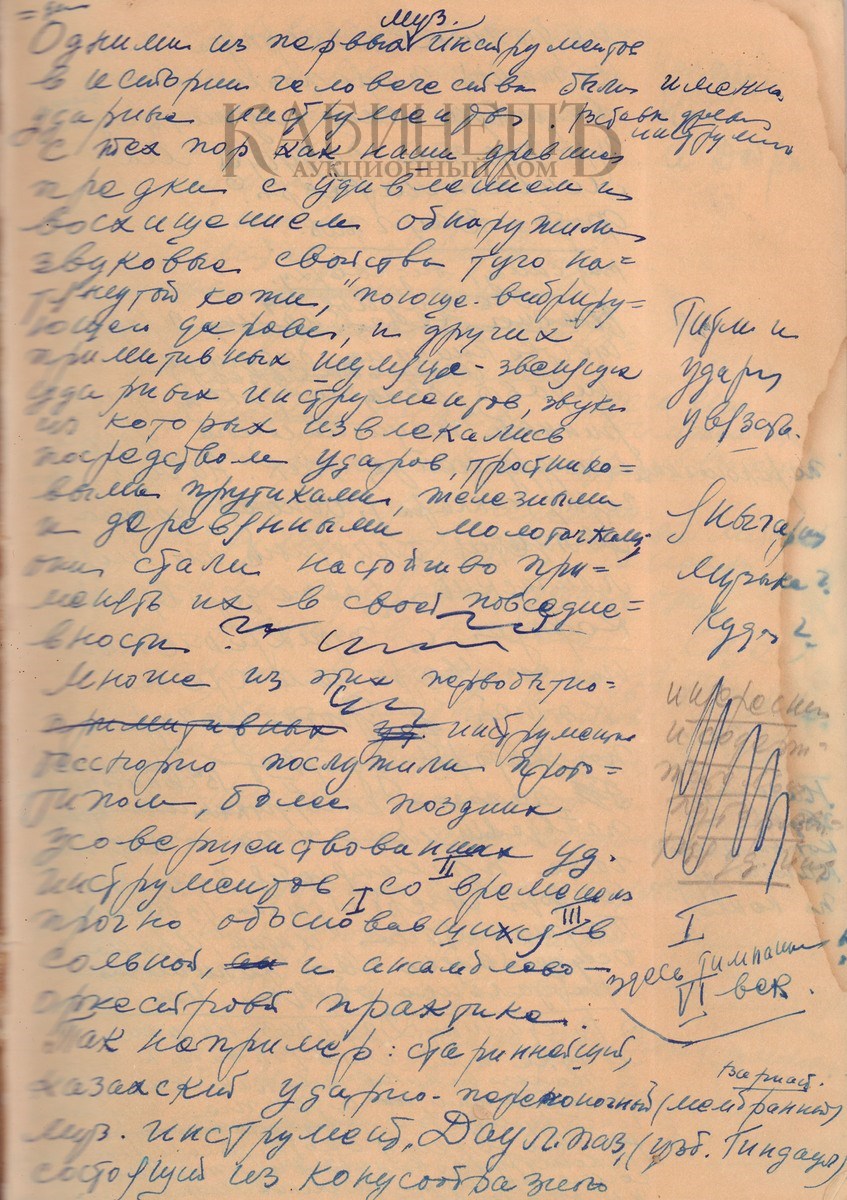 муз.
Одними из первых инструментов
в истории человечества были именно
ударные инструменты. Вставк древн
инструмент
КАБИНЕТЪ
АУКЦИОННЫЙ ДОМ
С тех пор как наши древние
предки с удивлением и
восхищением обнаружили
звуковые свойства туго на=
тянутой кожи, "поюще-вибриру=
ющей дерева, и других
примитивных шумяще-звенящих
ударных инструментов, звуки
из которых извлекались
посредством ударов, тростнико=
выми прутиками, железными
и деревянными молоточками,
они стали настойчиво при=
менять их в своей повседне=
вности ?
Многие из этих первобытно=
примитивных уд. инструментов
бесспорно послужили прото=
типом, более поздних
усовершенствованных уд.
II
инструментов, со временем
I III
прочно обосновавшихся в
сольной, и ансамблево-
оркестровой практике.
Так например: стариннейший,
казахский ударно-перепоночный (мембранный)
муз. инструмент, Даулпаз, (узб. Тиндаул)
состоящий из конусообразного
и
ударн
увязать.
музыка ?
Куда ?
I
здесь тимпаны
VI век.
Вариант.